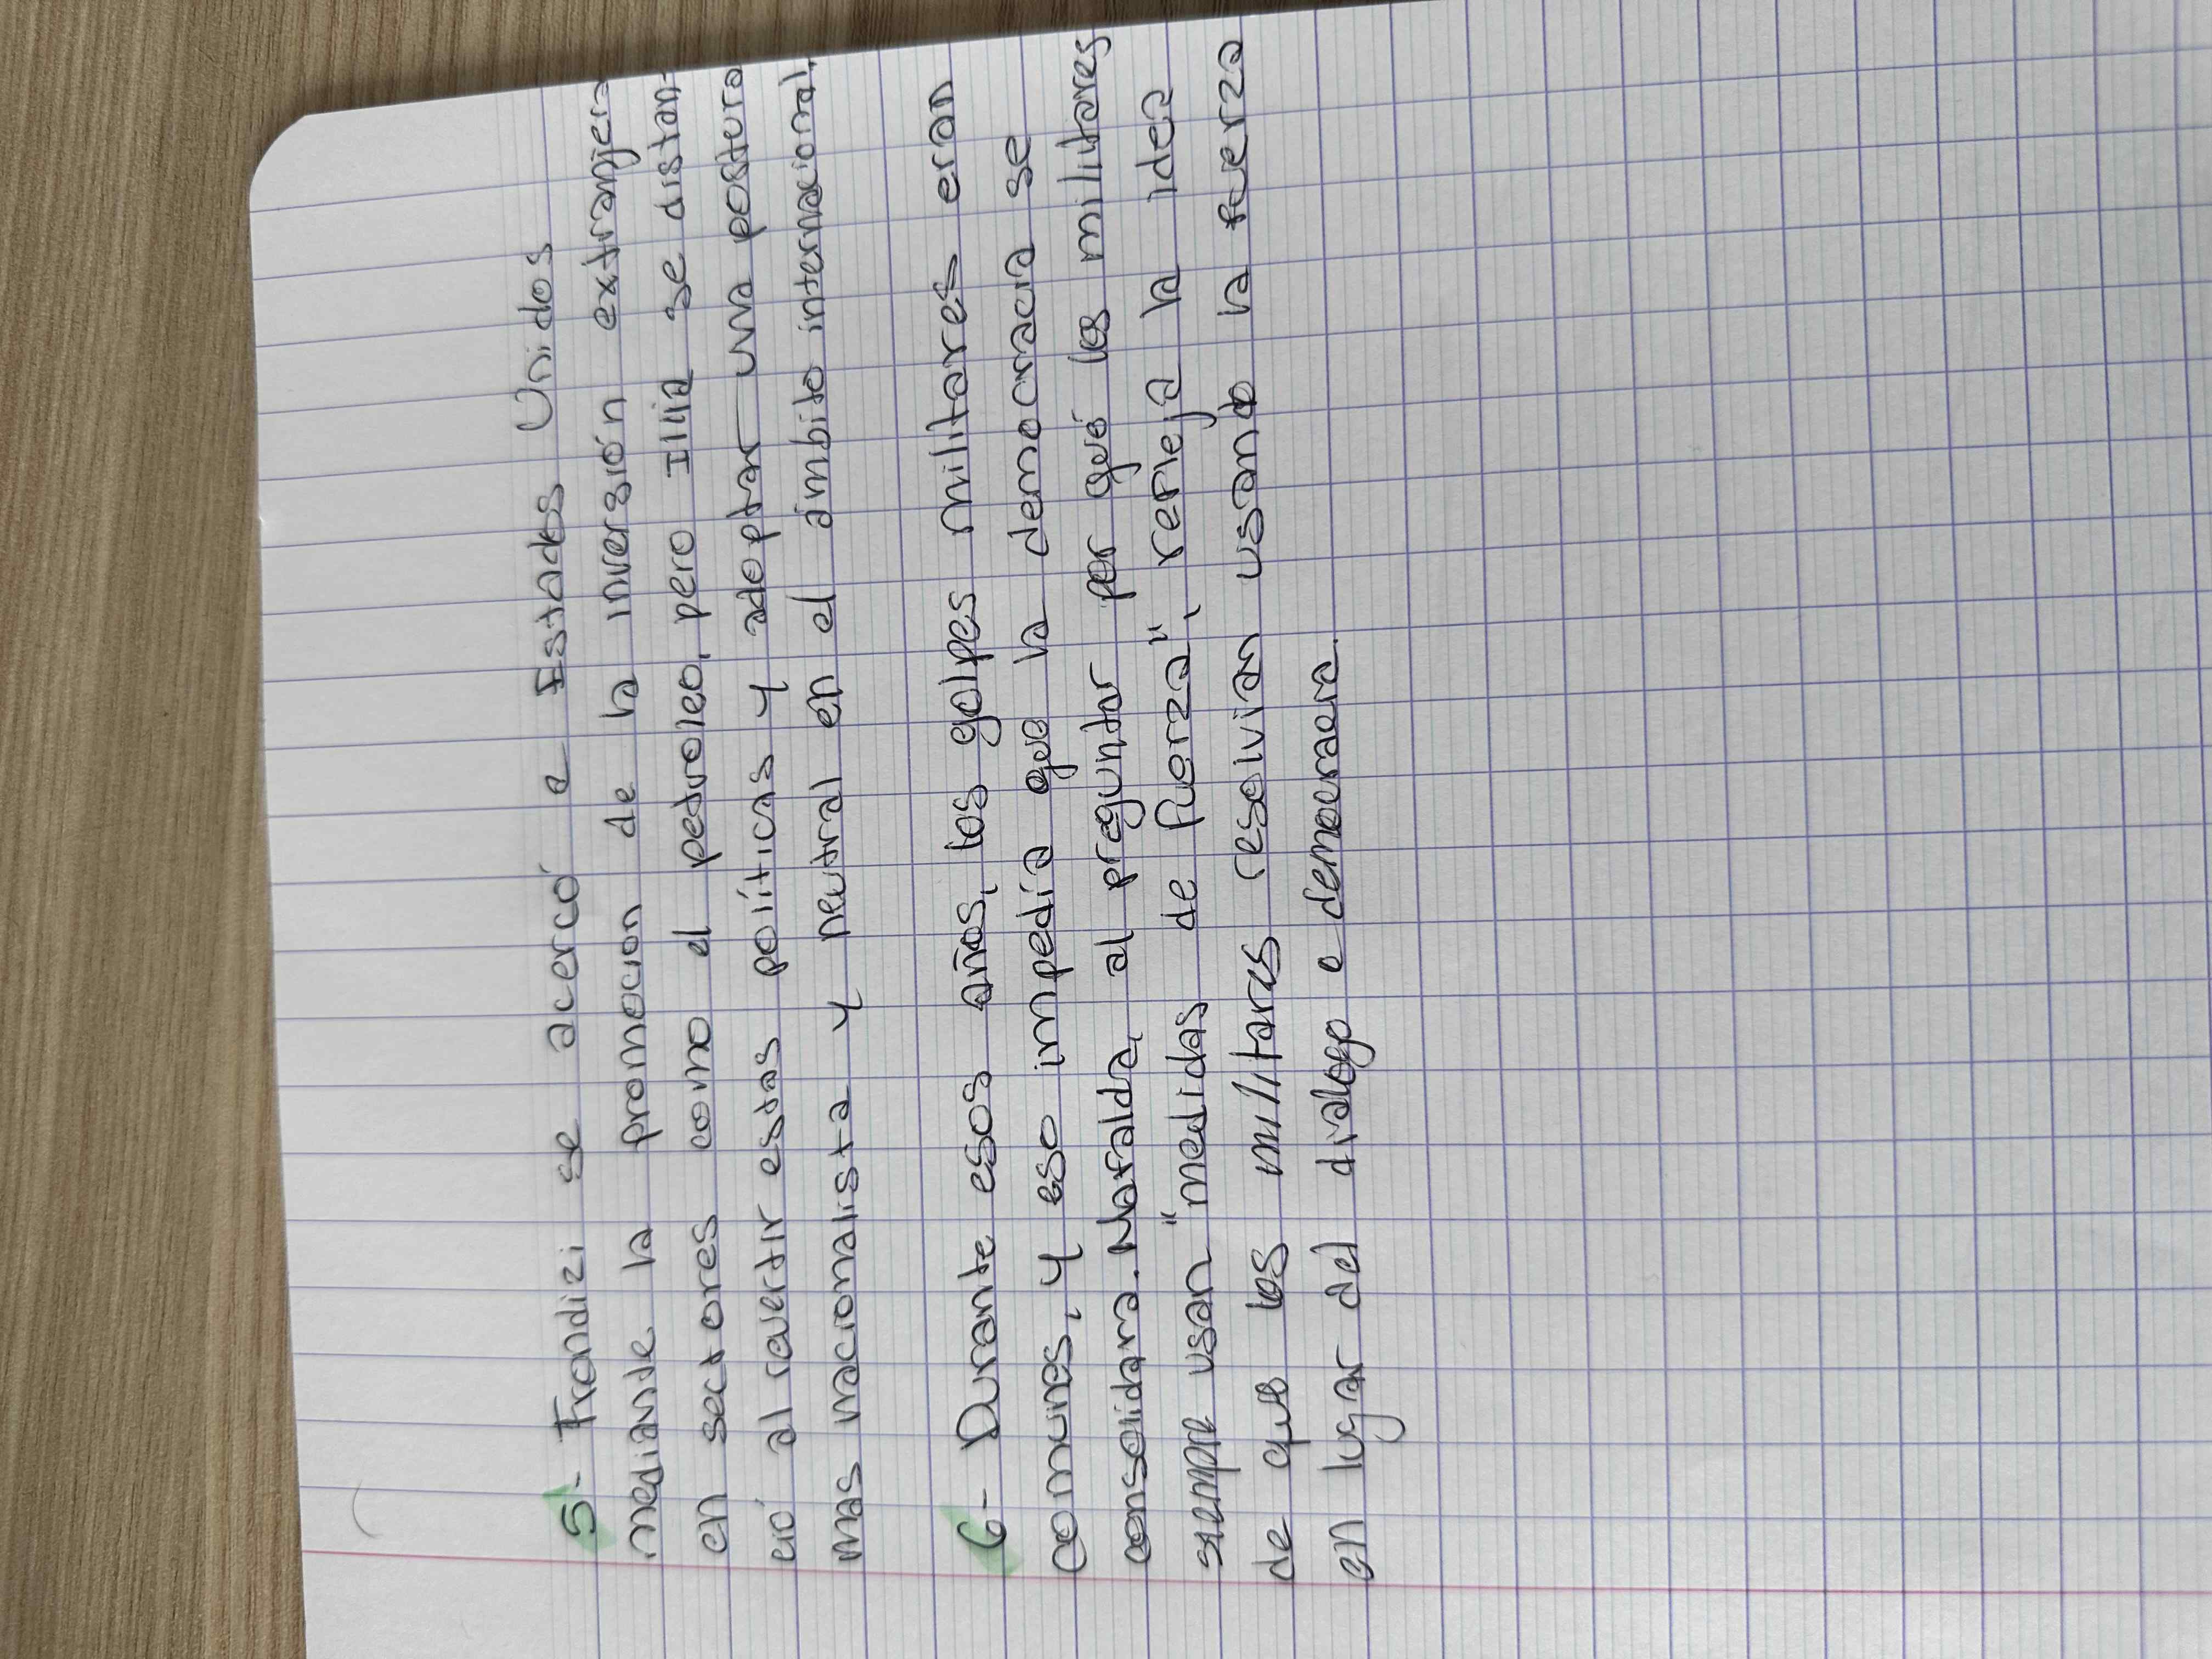 5- Frondizi se acercó a Estados Unidos
mediante la promocion de la inversión extranjera
en sectores como el petroleo, pero Illia se distan-
ció al revertir estas políticas y adoptar una postura
mas nacionalista y neutral en el ámbito internacional.
6- Durante esos años, los golpes militares eran
comunes, y eso impedía que la democracia se
consolidara. Mafalda, al preguntar por qué los militares
siempre usan "medidas de fuerza", refleja la idea
de que los militares resolvian usando la fuerza
en lugar del dialogo e democracia.